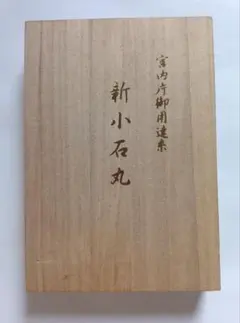 宮内庁御用達糸
新小石丸